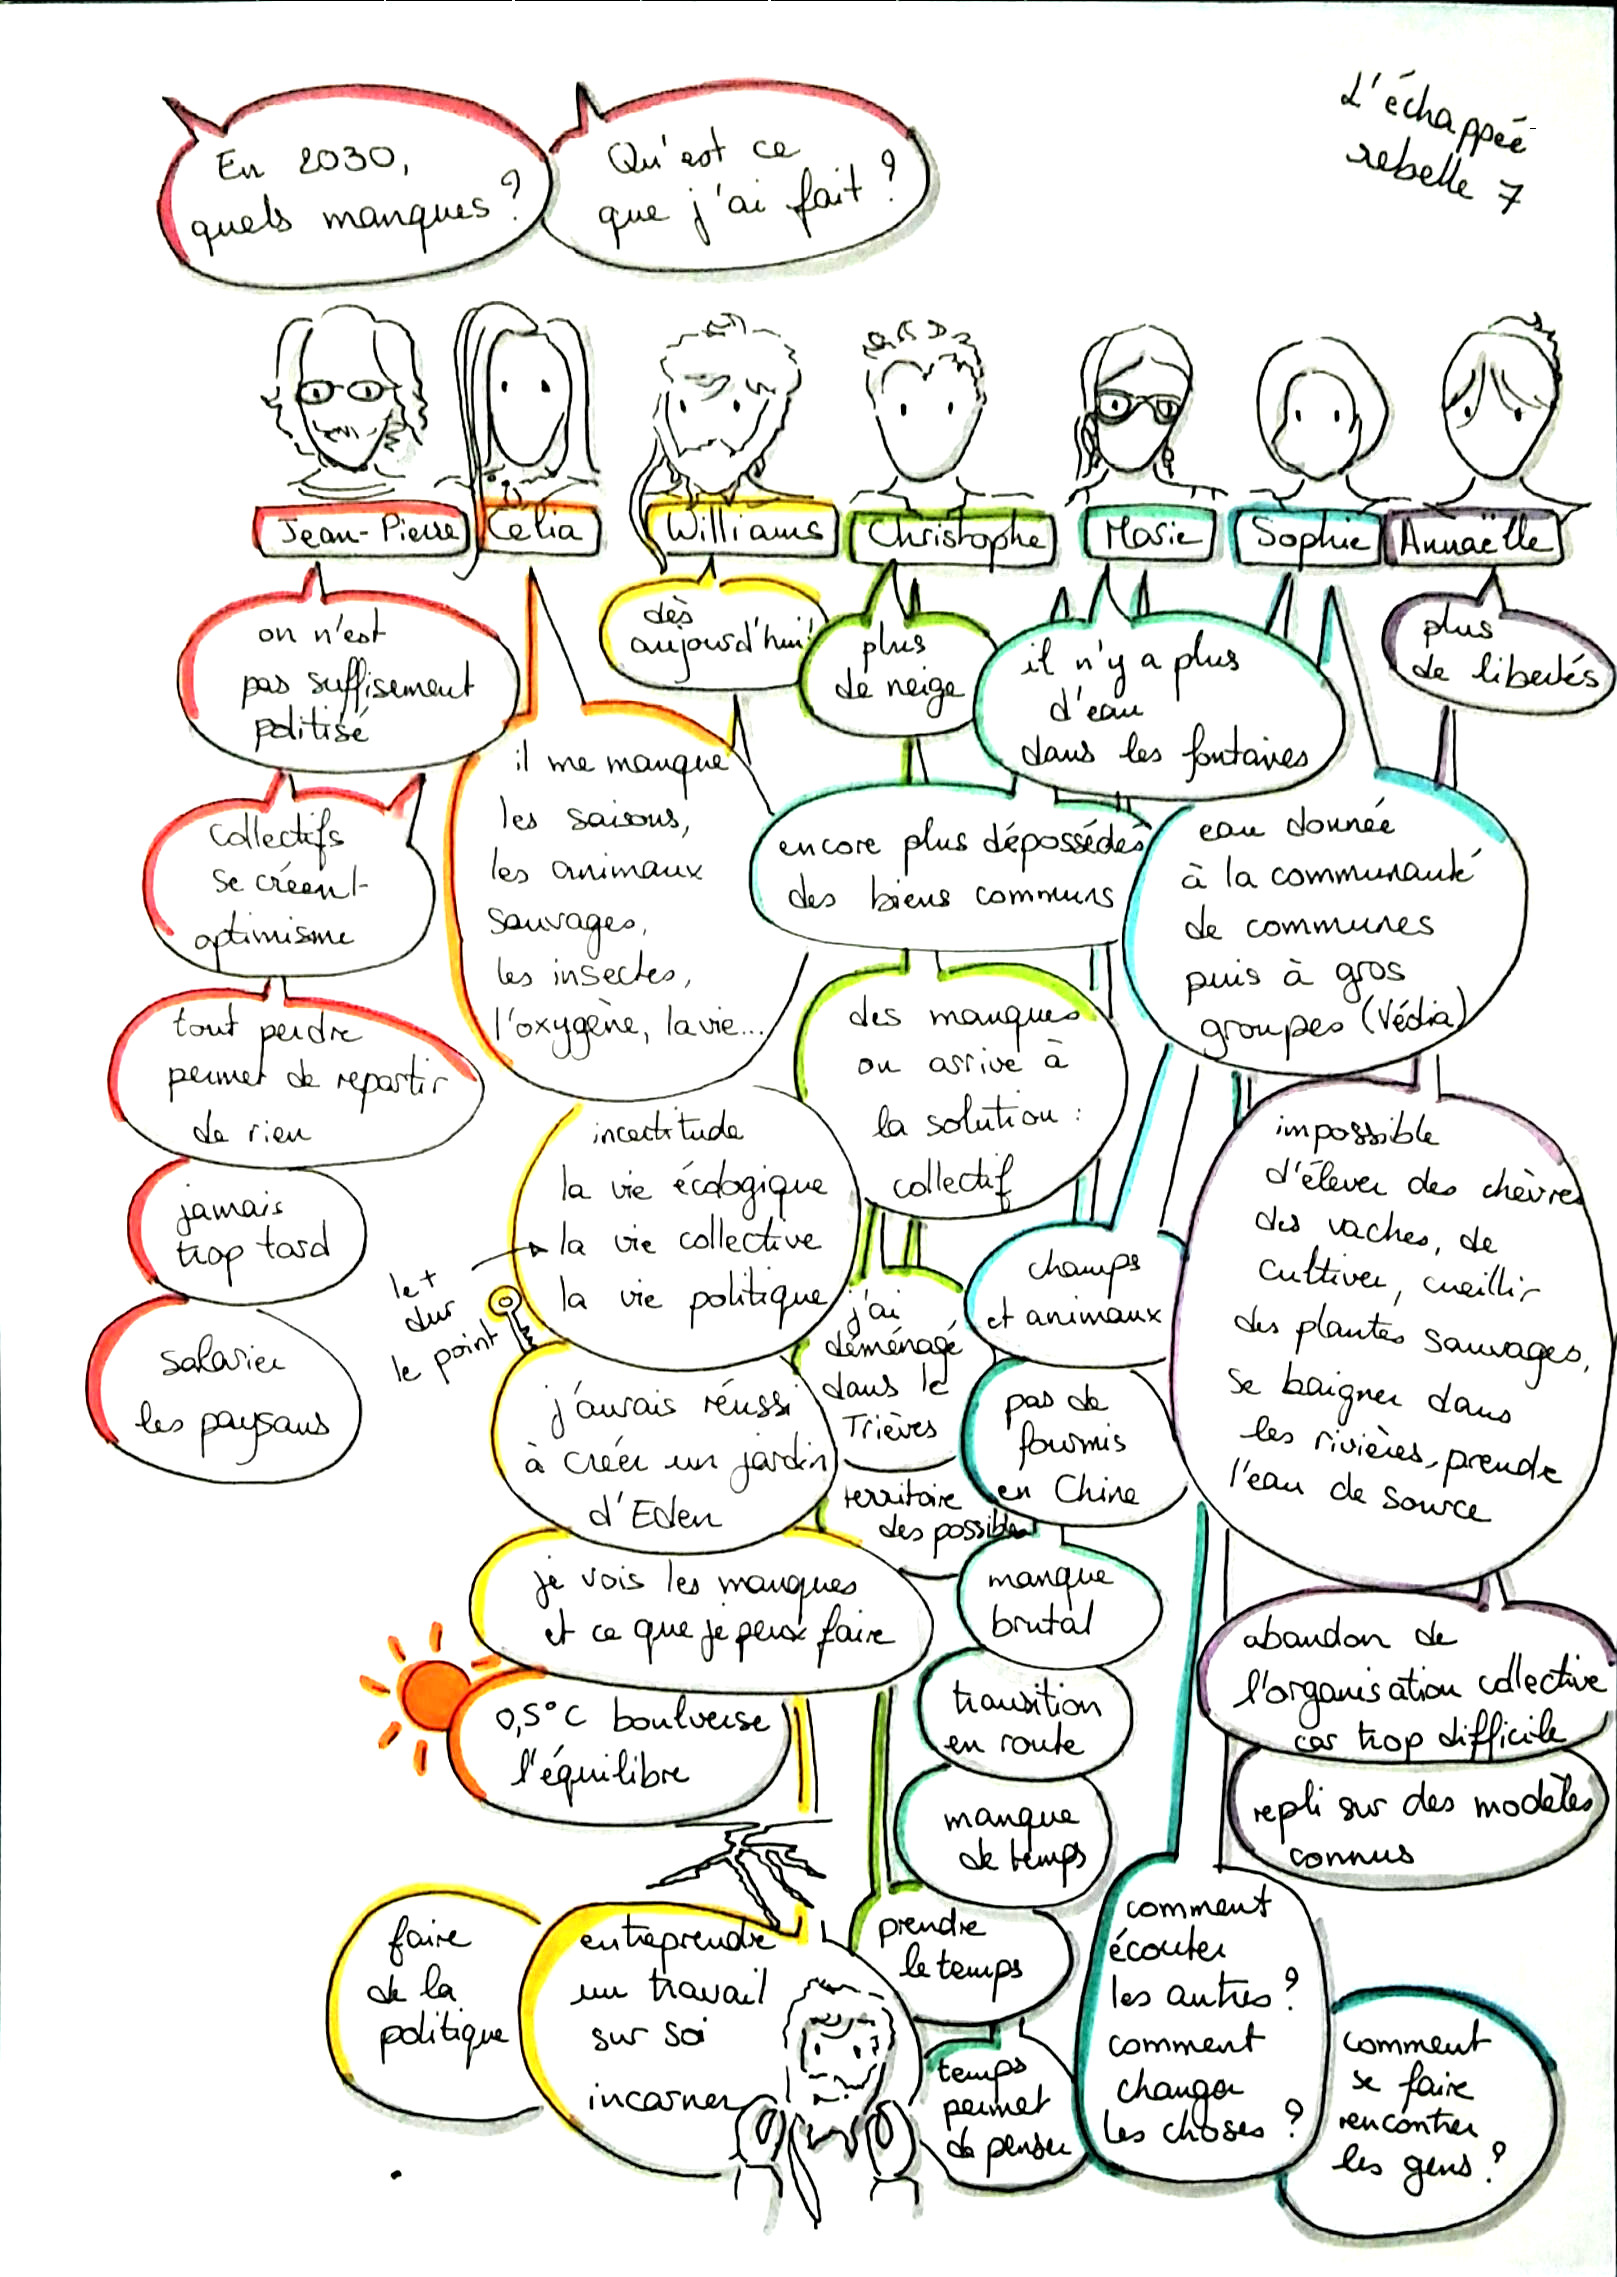 L'échappée
rebelle 7
En 2030,
quels manques ?
Qu'est ce
que j'ai fait ?
Jean-Pierre
Célia
Williams
Christophe
Marie
Sophie
Annaëlle
on n'est
pas suffisement
politisé
collectifs
se créent
optimisme
tout perdre
permet de repartir
de rien
jamais
trop tard
salarier
les paysans
il me manque
les saisons,
les animaux
sauvages,
les insectes,
l'oxygène, la vie...
dès
aujourd'hui !
plus
de neige
il n'y a plus
d'eau
dans les fontaines
plus
de libertés
encore plus dépossédés
des biens communs
eau donnée
à la communauté
de communes
puis à gros
groupes (Véolia)
des manques
on arrive à
la solution :
collectif
incertitude
la vie écologique
la vie collective
la vie politique
le +
dur
le point
j'aurais réussi
à créer un jardin
d'Eden
j'ai
déménagé
dans le
Trièves
territoire
des possibles
champs
et animaux
pas de
fourmis
en Chine
impossible
d'élever des chèvres
des vaches, de
cultiver, cueillir
des plantes sauvages,
se baigner dans
les rivières, prendre
l'eau de source
je vois les manques
et ce que je peux faire
manque
brutal
0,5°C boulverse
l'équilibre
transition
en route
abandon de
l'organisation collective
car trop difficile
manque
de temps
repli sur des modèles
connus
faire
de la
politique
entreprendre
un travail
sur soi
incarner
prendre
le temps
temps
permet
de penser
comment
écouter
les autres ?
comment
changer
les choses ?
comment
se faire
rencontrer
les gens ?